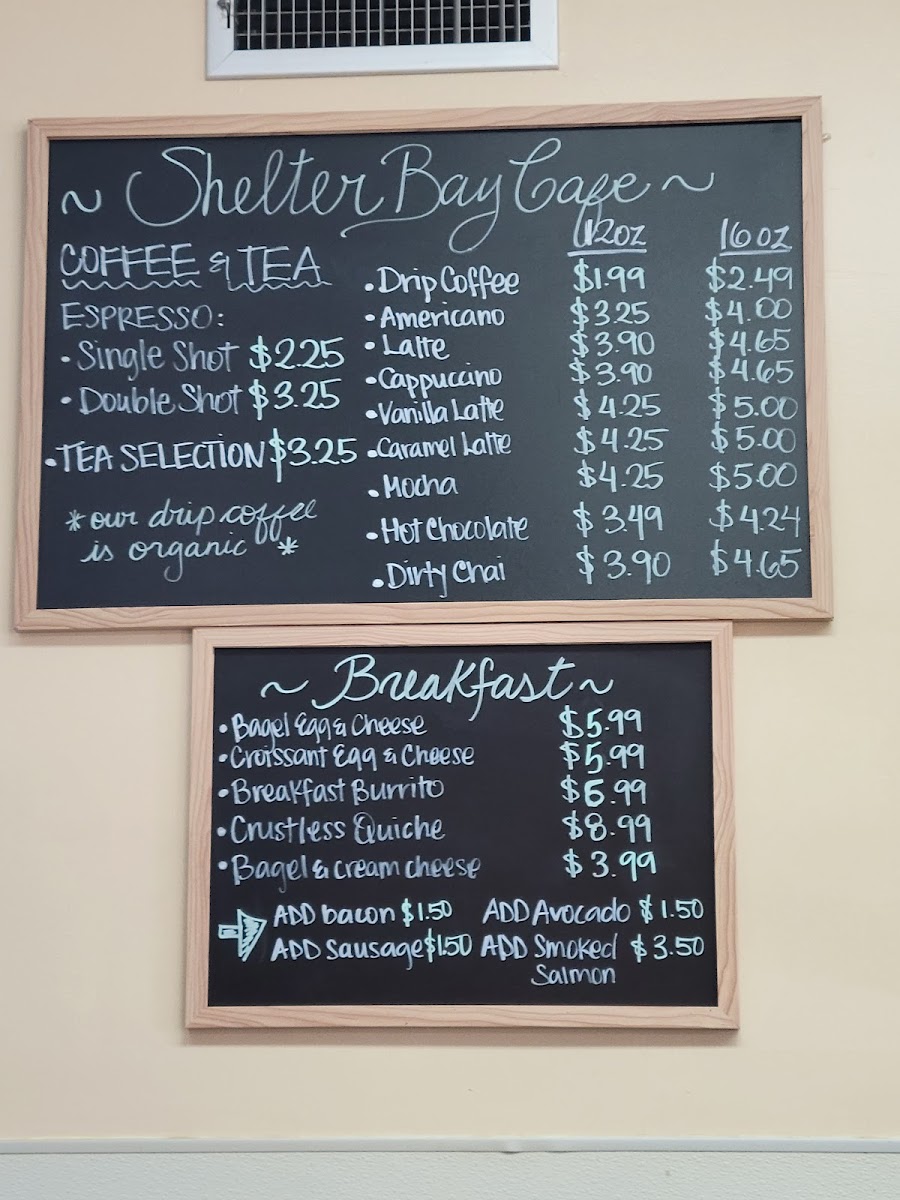 ~ Shelter Bay Cafe ~
COFFEE & TEA
ESPRESSO:
• Single Shot $2.25
• Double Shot $3.25
• TEA SELECTION $3.25
* our drip coffee
is organic *
12oz 16oz
• Drip Coffee $1.99 $2.49
• Americano $3.25 $4.00
• Latte $3.90 $4.65
• Cappuccino $3.90 $4.65
• Vanilla Latte $4.25 $5.00
• Caramel Latte $4.25 $5.00
• Mocha $4.25 $5.00
• Hot Chocolate $3.49 $4.24
• Dirty Chai $3.90 $4.65
~ Breakfast ~
• Bagel Egg & Cheese $5.99
• Croissant Egg & Cheese $5.99
• Breakfast Burrito $6.99
• Crustless Quiche $8.99
• Bagel & cream cheese $3.99
ADD bacon $1.50 ADD Avocado $1.50
ADD Sausage $1.50 ADD Smoked $3.50
Salmon